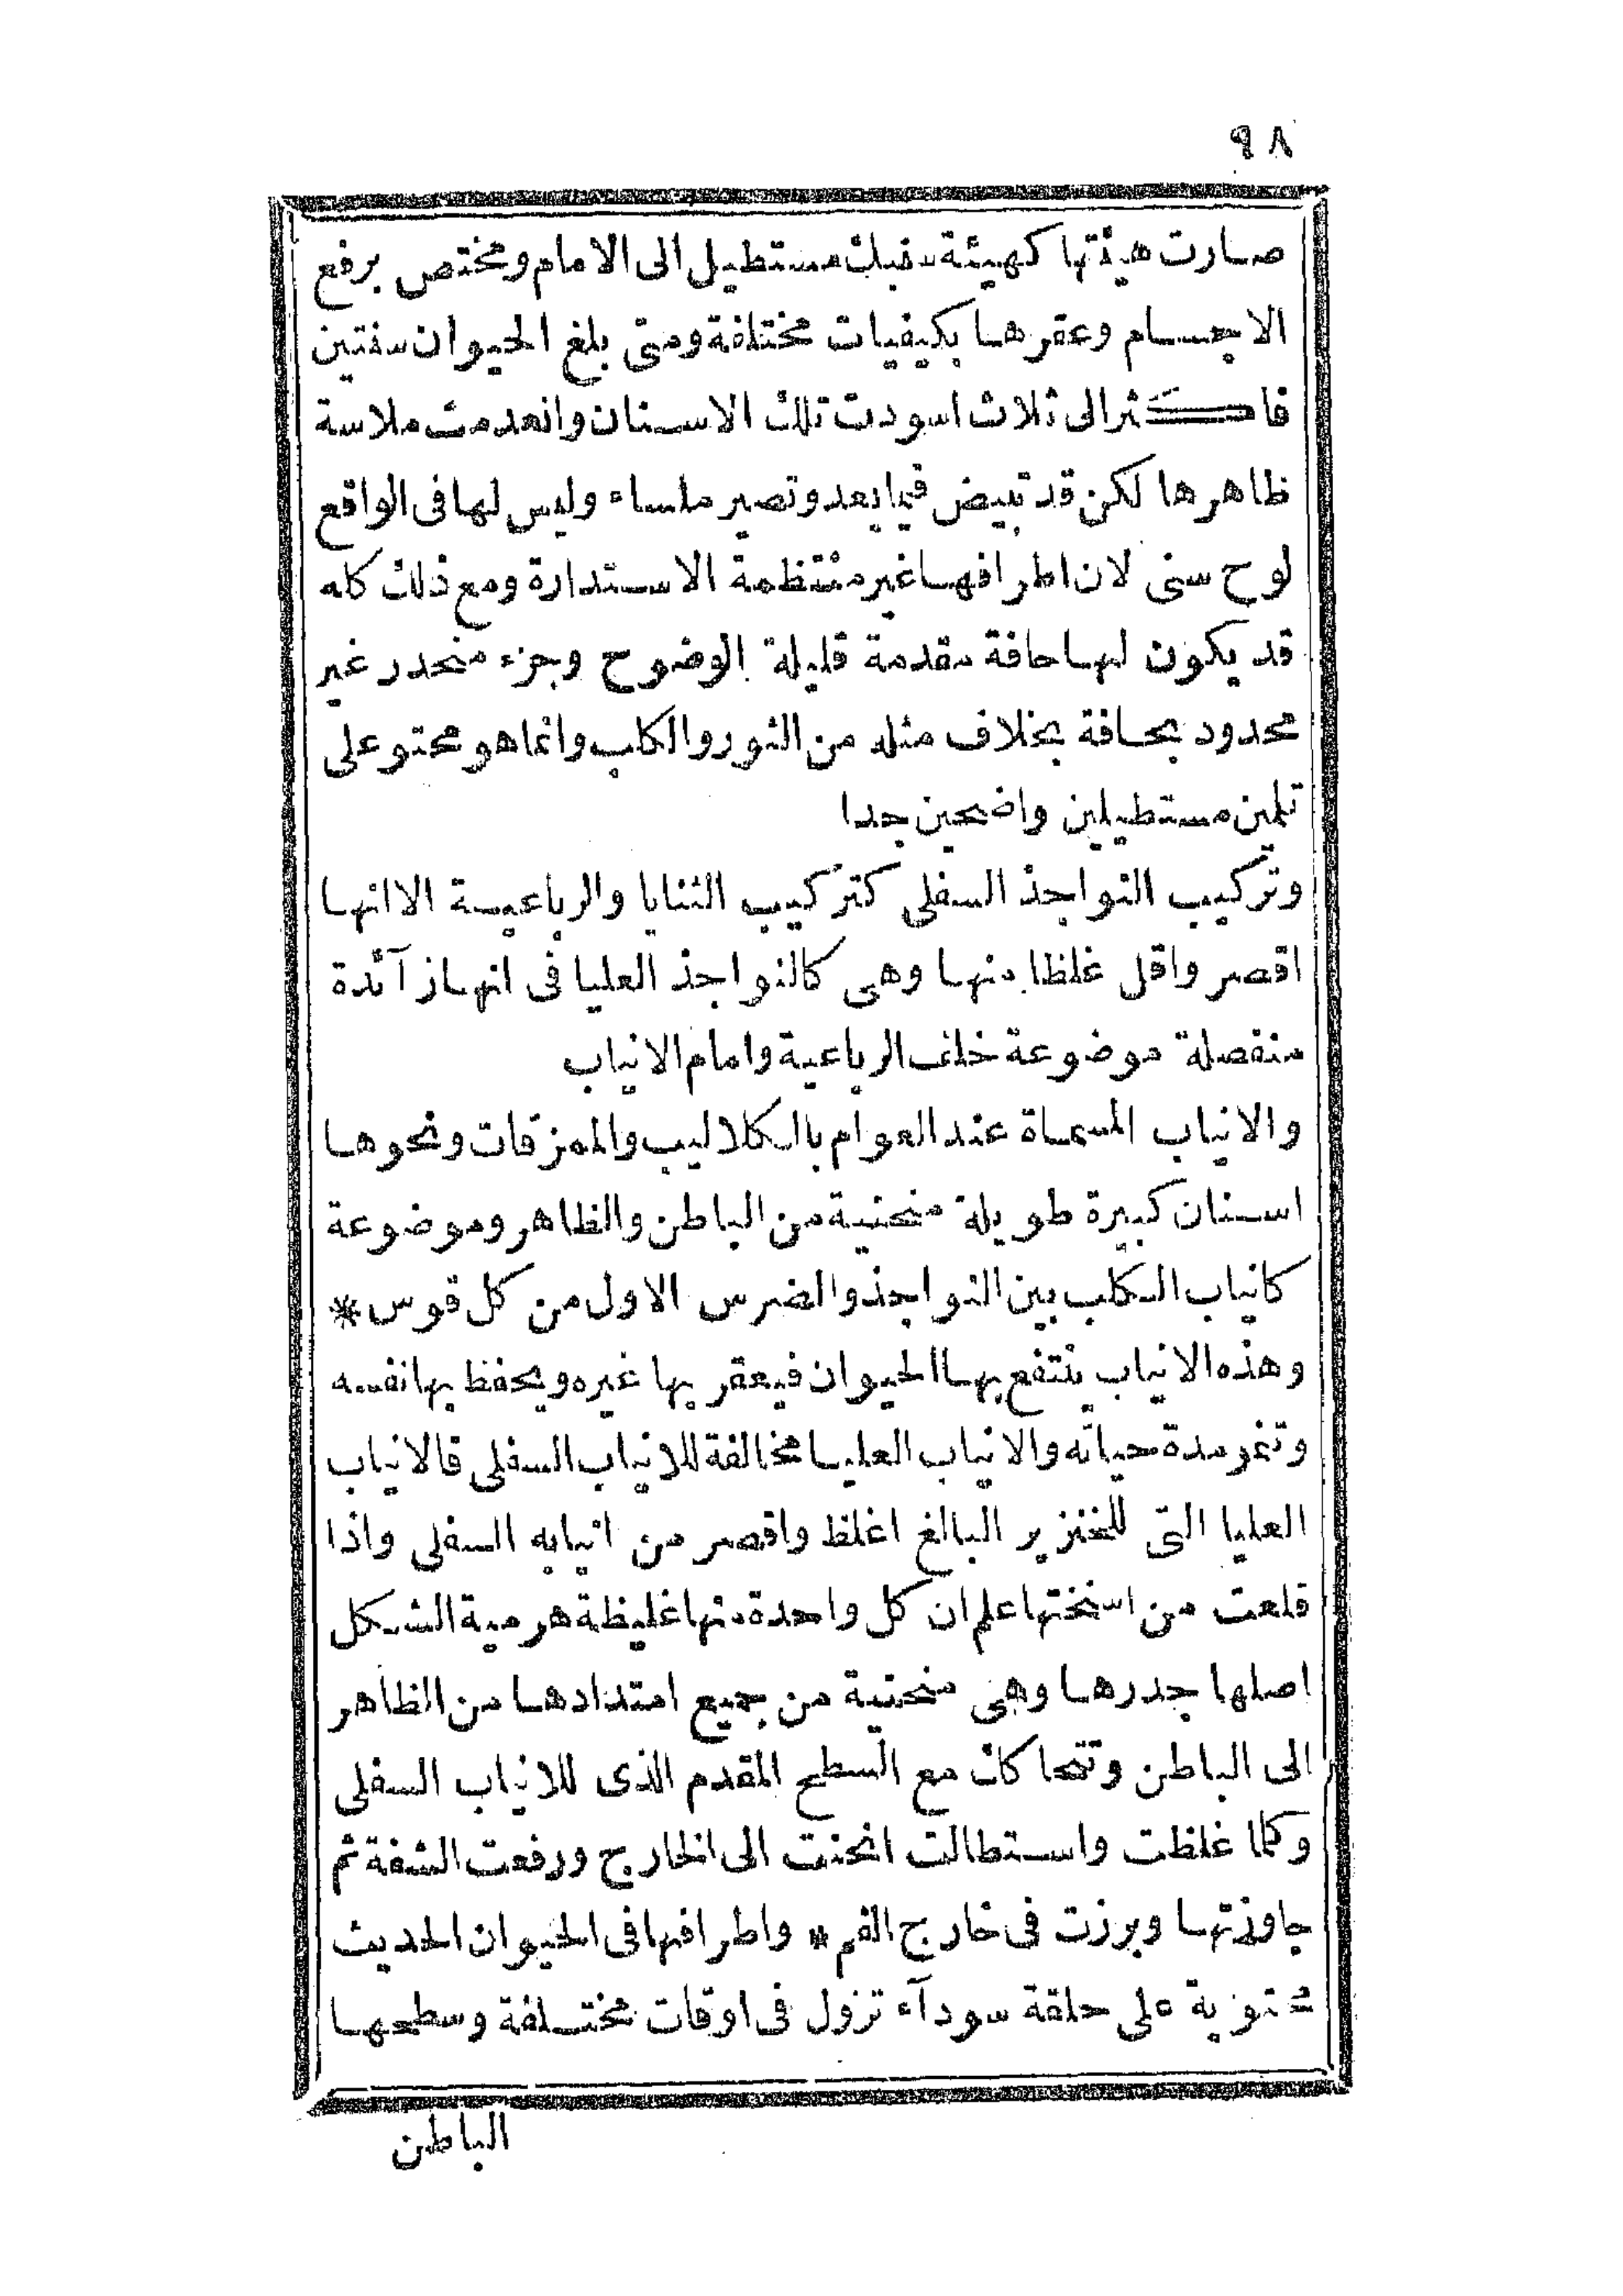 ٩٨
صارت هيئتها كهيئة سنبك مستطيل الى الامام ومختص برفع
الاجسام وعقرها بكيفيات مختلفة ومتى بلغ الحيوان سنتين
فاكثر الى ثلاث اسودت تلك الاسنان وانعدمت ملاسة
ظاهرها لكن قد تبيض فيما بعد وتصير ملساء وليس لها فى الواقع
لوح سنى لان اطرافها غير منتظمة الاستدارة ومع ذلك كله
قد يكون لها حافة مقدمة قليلة الوضوح وجزء منحدر غير
محدود بحافة بخلاف مثله من الثور والكلب وانما هو محتو على
تلمين مستطيلين واضحين جدا
وتركيب النواجذ السفلى كتركيب الثنايا والرباعية الا انها
اقصر واقل غلظا منها وهى كالنواجذ العليا فى انها زآئدة
منفصلة موضوعة خلف الرباعية وامام الانياب
والانياب المسماة عند العوام بالكلاليب والممزقات ونحوها
اسنان كبيرة طويلة منحنية من الباطن والظاهر وموضوعة
كانياب الكلب بين النواجذ والضرس الاول من كل قوس *
وهذه الانياب ينتفع بها الحيوان فيعقر بها غيره ويحفظ بها نفسه
وتنمو مدة حياته والانياب العليا مخالفة للانياب السفلى فالانياب
العليا التى للخنزير البالغ اغلظ واقصر من انيابه السفلى واذا
قلعت من اسنختها علم ان كل واحدة منها غليظة هرمية الشكل
اصلها جدرها وهى منحنية من جميع امتدادها من الظاهر
الى الباطن وتتحاكك مع السطح المقدم الذى للانياب السفلى
وكلما غلظت واستطالت انحنت الى الخارج ورفعت الشفة ثم
جاوزتها وبرزت فى خارج الفم * واطرافها فى الحيوان الحديث
محتوية على حلقة سودآء تزول فى اوقات مختلفة وسطحها
الباطن